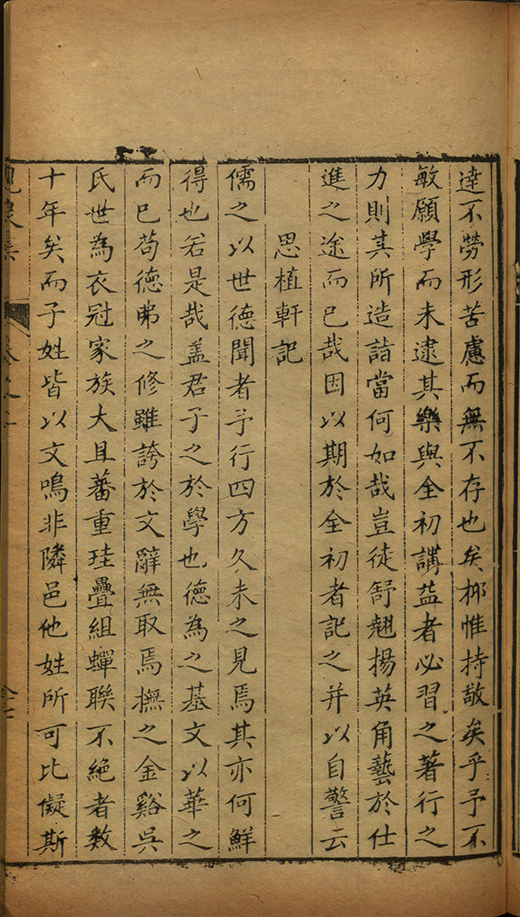 達不勞形苦慮而無不存也矣梛惟持敬矣乎予不
敏願學而未逮其樂與全初講益者必習之著行之
力則其所造詣當何如哉豈徒舒翹揚英角藝於仕
進之途而已哉因以期於全初者記之并以自警云
思植軒記
儒之以世德聞者予行四方久未之見焉其亦何鮮
得也若是哉盖君子之於學也德為之基文以華之
而已苟德弗之修雖誇於文辭無取焉撫之金谿吳
氏世為衣冠家族大且蕃重珪疊組蟬聯不絕者数
十年矣而子姓皆以文鳴非隣邑他姓所可比儗斯